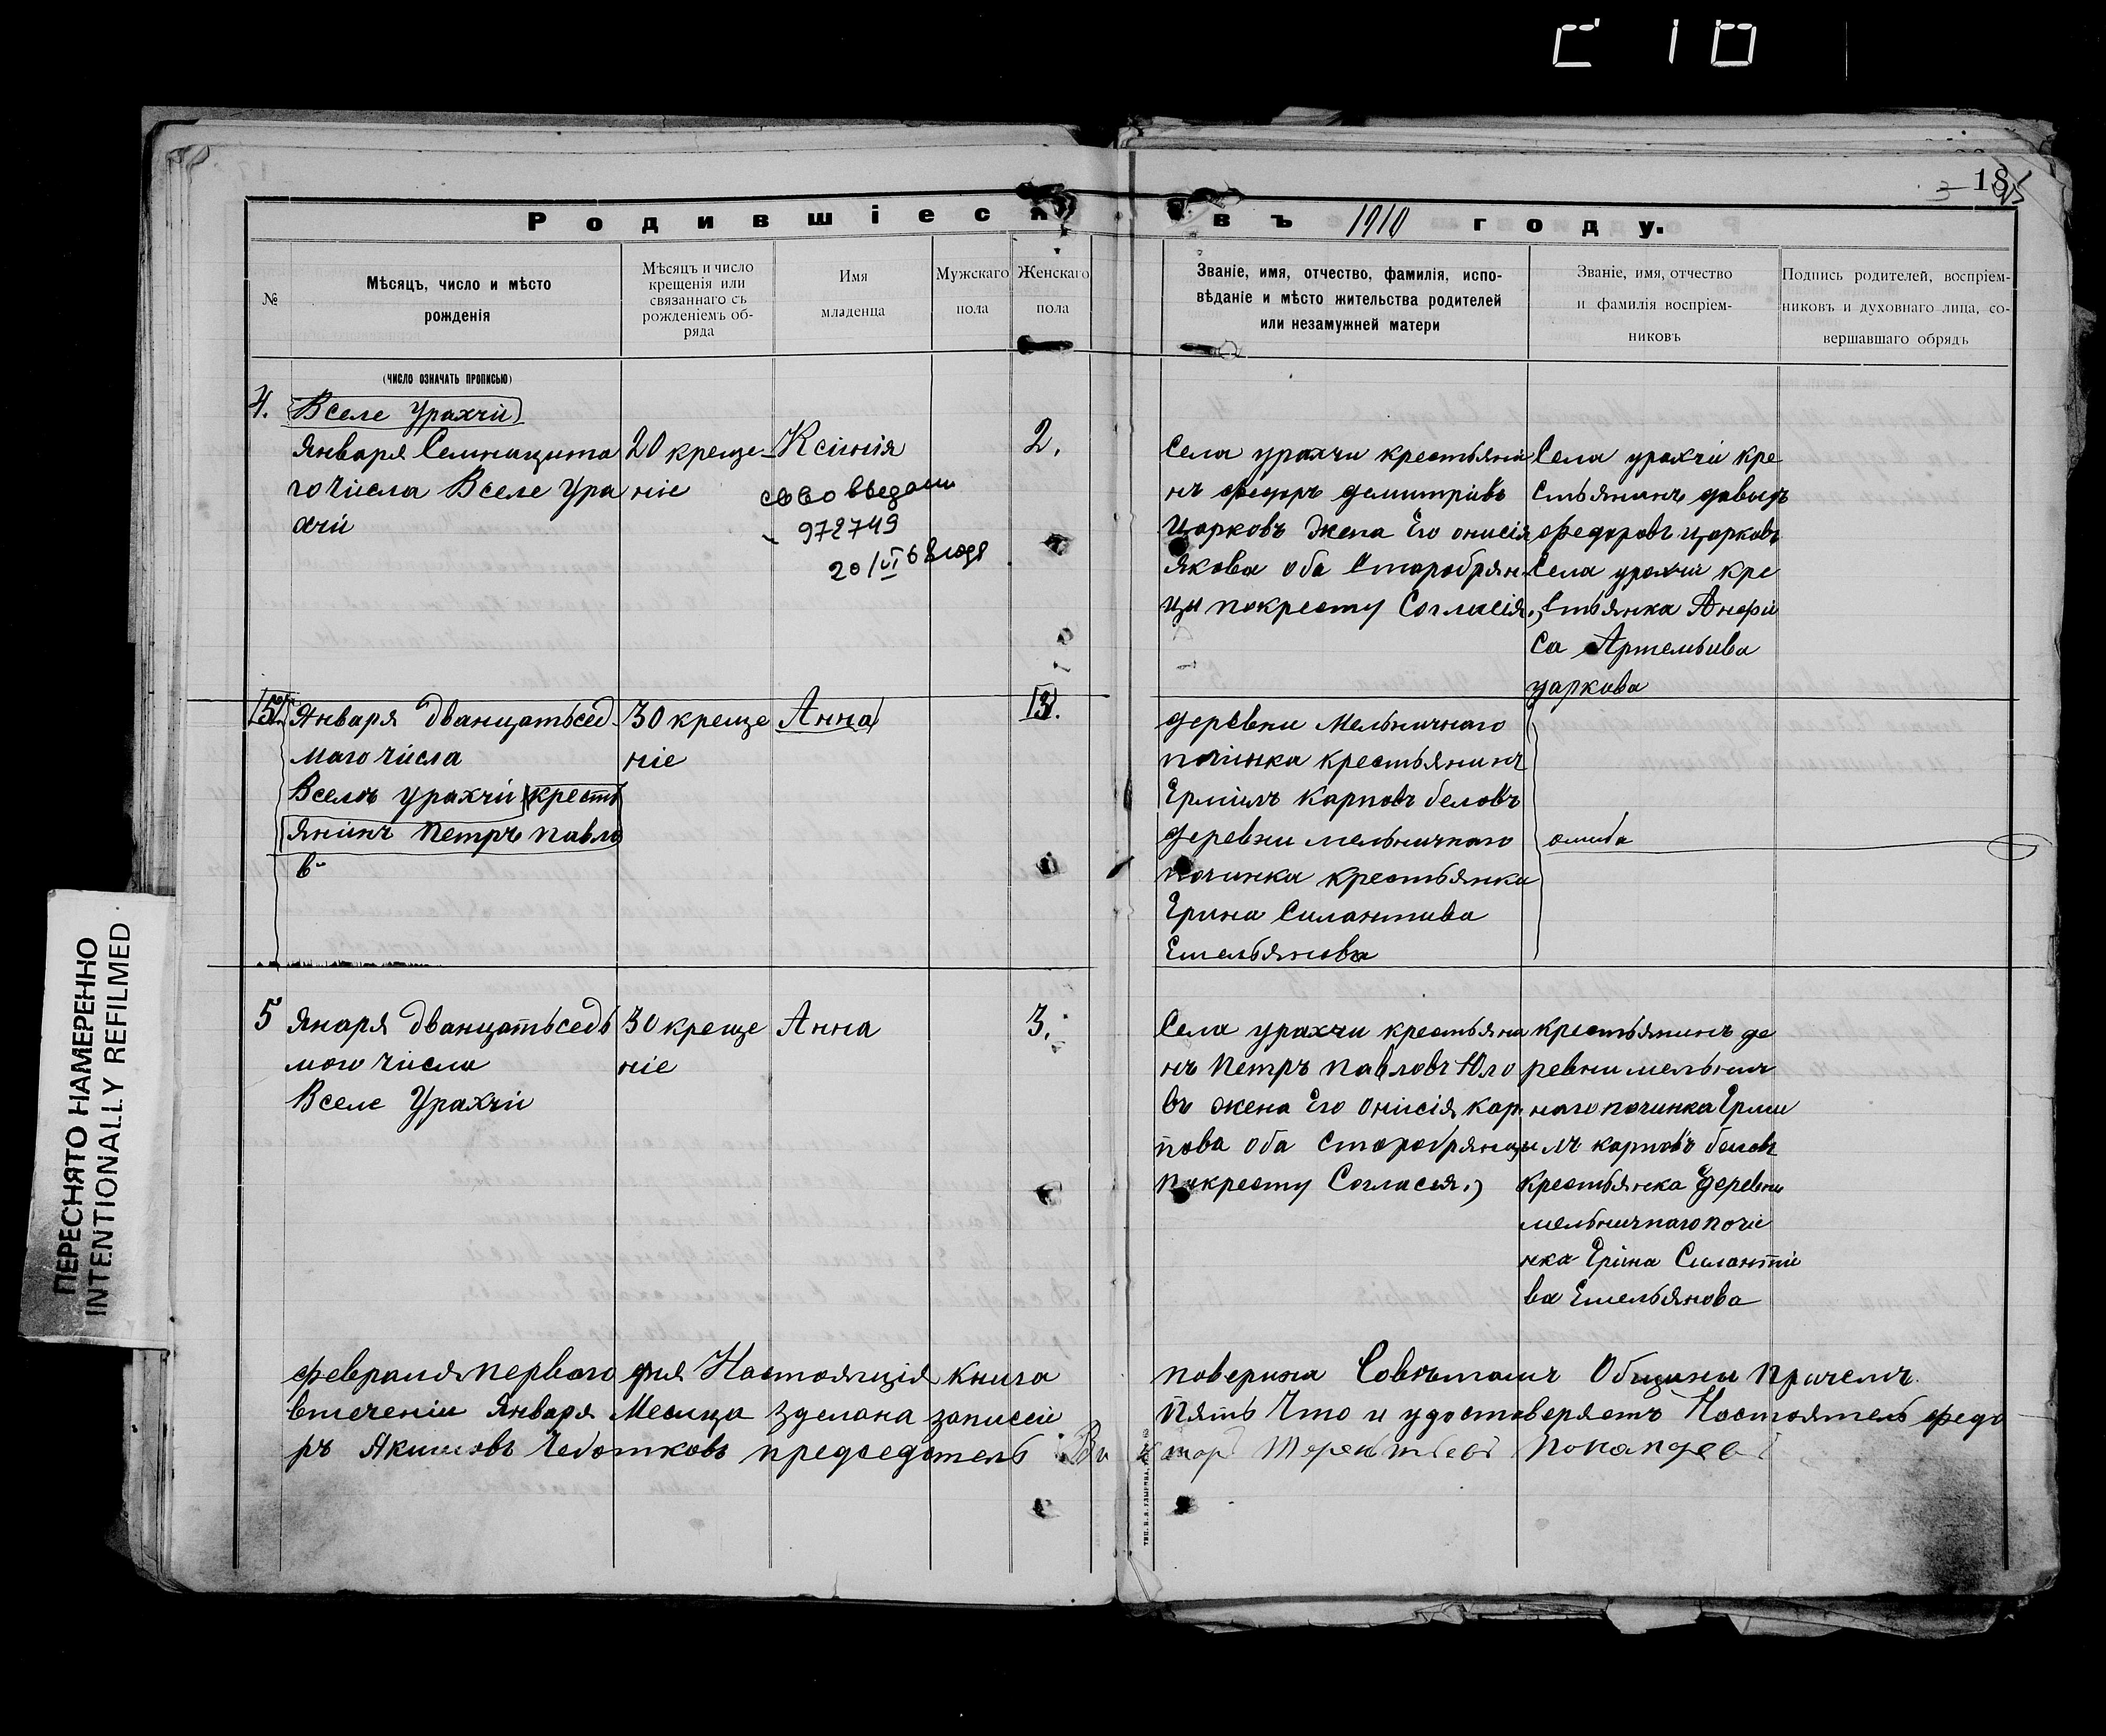 18
Родившіеся въ 1910 году.
№
Мѣсяцъ, число и мѣсто
рожденія
Мѣсяцъ и число
крещенія или
связаннаго съ
рожденіемъ об-
ряда
Имя
младенца
Мужскаго
пола
Женскаго
пола
Званіе, имя, отчество, фамилія, испо-
вѣданіе и мѣсто жительства родителей
или незамужней матери
Званіе, имя, отчество
и фамилія воспріем-
никовъ
Подпись родителей, воспріем-
никовъ и духовнаго лица, со-
вершавшаго обрядъ
(число означать прописью)
4.
Вселе Урахчи
января Семнацита
го числа Вселе Ура
хчи
20 креще-
ніе
Ксінія
972749
20/VI
2.
Села урахчи крестьяни
нъ федоръ демитрiвъ
Царковъ Жена Его онисія
Якова оба Старобрян-
цы покресту Согласія.
Села урахчи кре
стьянинъ давыдъ
федоровъ царковъ
Села урахчи кре
стьянка Анфи
са Артемьива
царкова
5.
Января дванцатьсед-
маго числа
Вселъ урахчи кресть
янинъ Петръ Павло
въ
30 креще
ніе
Анна
3.
деревни Мельничнаго
починка крестьянинъ
Ермилъ Карповъ беловъ
деревни мельничнаго
починка крестьянка
Ерина Силантива
Емельянова
ошиба
5
Янаря дванцатьседь
мого числа
Вселе Урахчи
30 креще
ніе
Анна
3.
Села урахчи крестьяни
нъ Петръ Павловъ Юло
въ жена Его Онисія Кар
пова оба старобрянцы
покресту Согласия.
крестьянинъ де
ревни мельнич
наго починка Ерми
лъ карповъ беловъ
крестьянка деревни
мельничнаго почи
нка Еріна Силанти
ва Емельянова
февраля первого дня Настоящія книга поверина Советомъ Общины Причемъ
втечении Января Месица зделана записей Пять Что и удостоверяетъ Настоятель федо
ръ Акимовъ Чеботковъ председатель
ПЕРЕСНЯТО НАМЕРЕННО
INTENTIONALLY REFILMED